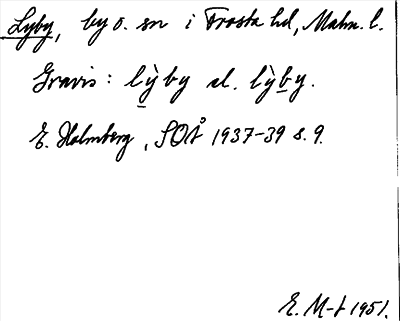 Lyby, by o. sn i Frosta hd, Malm. l.
Gravis: lỳby el. lỳby.
E. Holmberg, SOÅ 1937-39 s. 9.
E. M-t 1951.